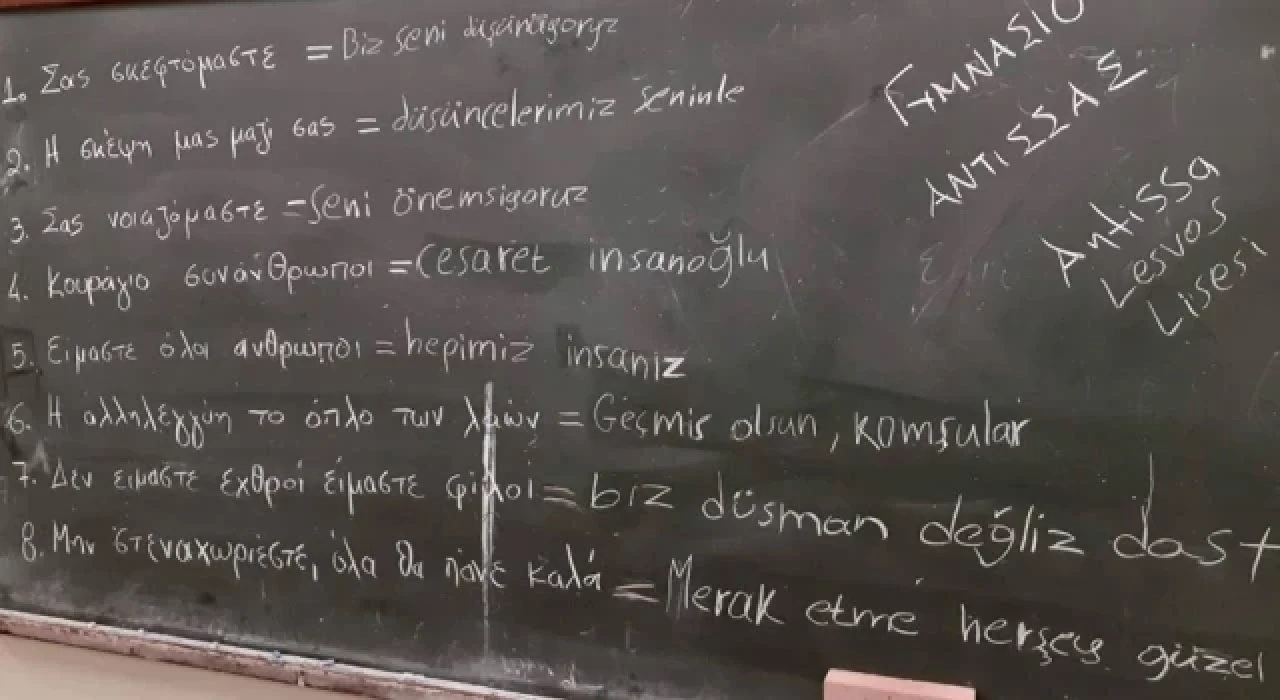 1. Σας σκεφτόμαστε = Biz seni düşünüyoryz
2. Η σκέψη μας μαζί σας = düşüncelerimiz seninle
3. Σας νοιαζόμαστε = seni önemsiyoruz
4. Κουράγιο συνάνθρωποι = cesaret insanoğlu
5. Ειμαστε όλοι ανθρωποι = hepimiz insanız
6. Η αλληλεγγύη το όπλο των λαών = Geçmiş olsun, komşular
7. Δεν ειμαστε εχθροί είμαστε φίλοι = biz düsman değliz dast
8. Μην στεναχωριέστε, όλα θα πάνε καλά = Merak etme herşey güzel
ΓΥΜΝΑΣΙΟ
ΑΝΤΙΣΣΑΣ
Antissa
Lesvos
Lisesi